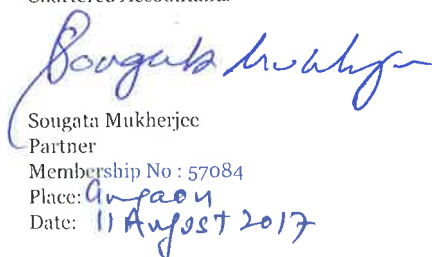 Sougata Mukherjee
Sougata Mukherjee
Partner
Membership No : 57084
Place: Gurgaon
Date: 11 August 2017